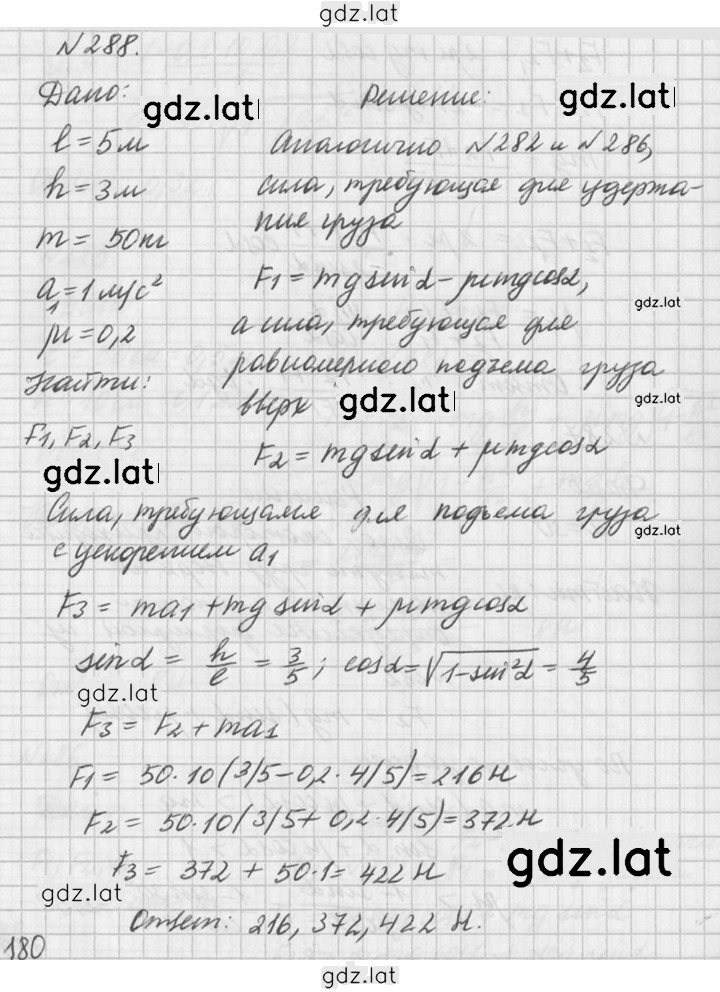 gdz.lat
№288.
Дано:
gdz.lat
Решение:
gdz.lat
l = 5 м
h = 3 м
m = 50 кг
a₁ = 1 м/с²
μ = 0,2
Найти:
F₁, F₂, F₃
gdz.lat
Аналогично №282 и №286,
сила, требующая для удержа-
ния груза
F₁ = mg sinα - μmgcosα,
gdz.lat
а сила, требующая для
равномерного подъема груза
gdz.lat
вверх
gdz.lat
F₂ = mg sinα + μmgcosα
Сила, требующаяся для подъема груза
gdz.lat
с ускорением a₁
F₃ = ma₁ + mg sinα + μmgcosα
sinα = h/l = 3/5; cosα = √(1-sin²α) = 4/5
gdz.lat
F₃ = F₂ + ma₁
F₁ = 50·10(3/5 - 0,2·4/5) = 216 Н
F₂ = 50·10(3/5 + 0,2·4/5) = 372 Н
F₃ = 372 + 50·1 = 422 Н
gdz.lat
gdz.lat
Ответ: 216, 372, 422 Н.
180
gdz.lat